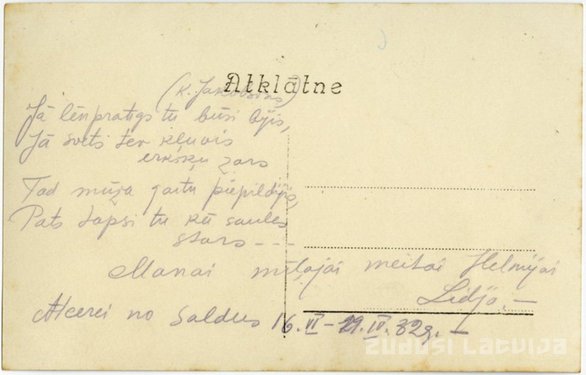 Atklātne
(K. Jakobsons)
Jā lēnpratīgs tu būsi bijis,
Jā svēts tev kļuvis
ērkšķu zars
Tad mūža gaitu piepildījis,
Pats tapsi tu kā saules
stars - - -
Manai mīļajai meitai Helmijai
Lidja. -
Atcerei no Saldus 16. VI - 29. IV. 32g. -
ZUDUSI LATVIJA